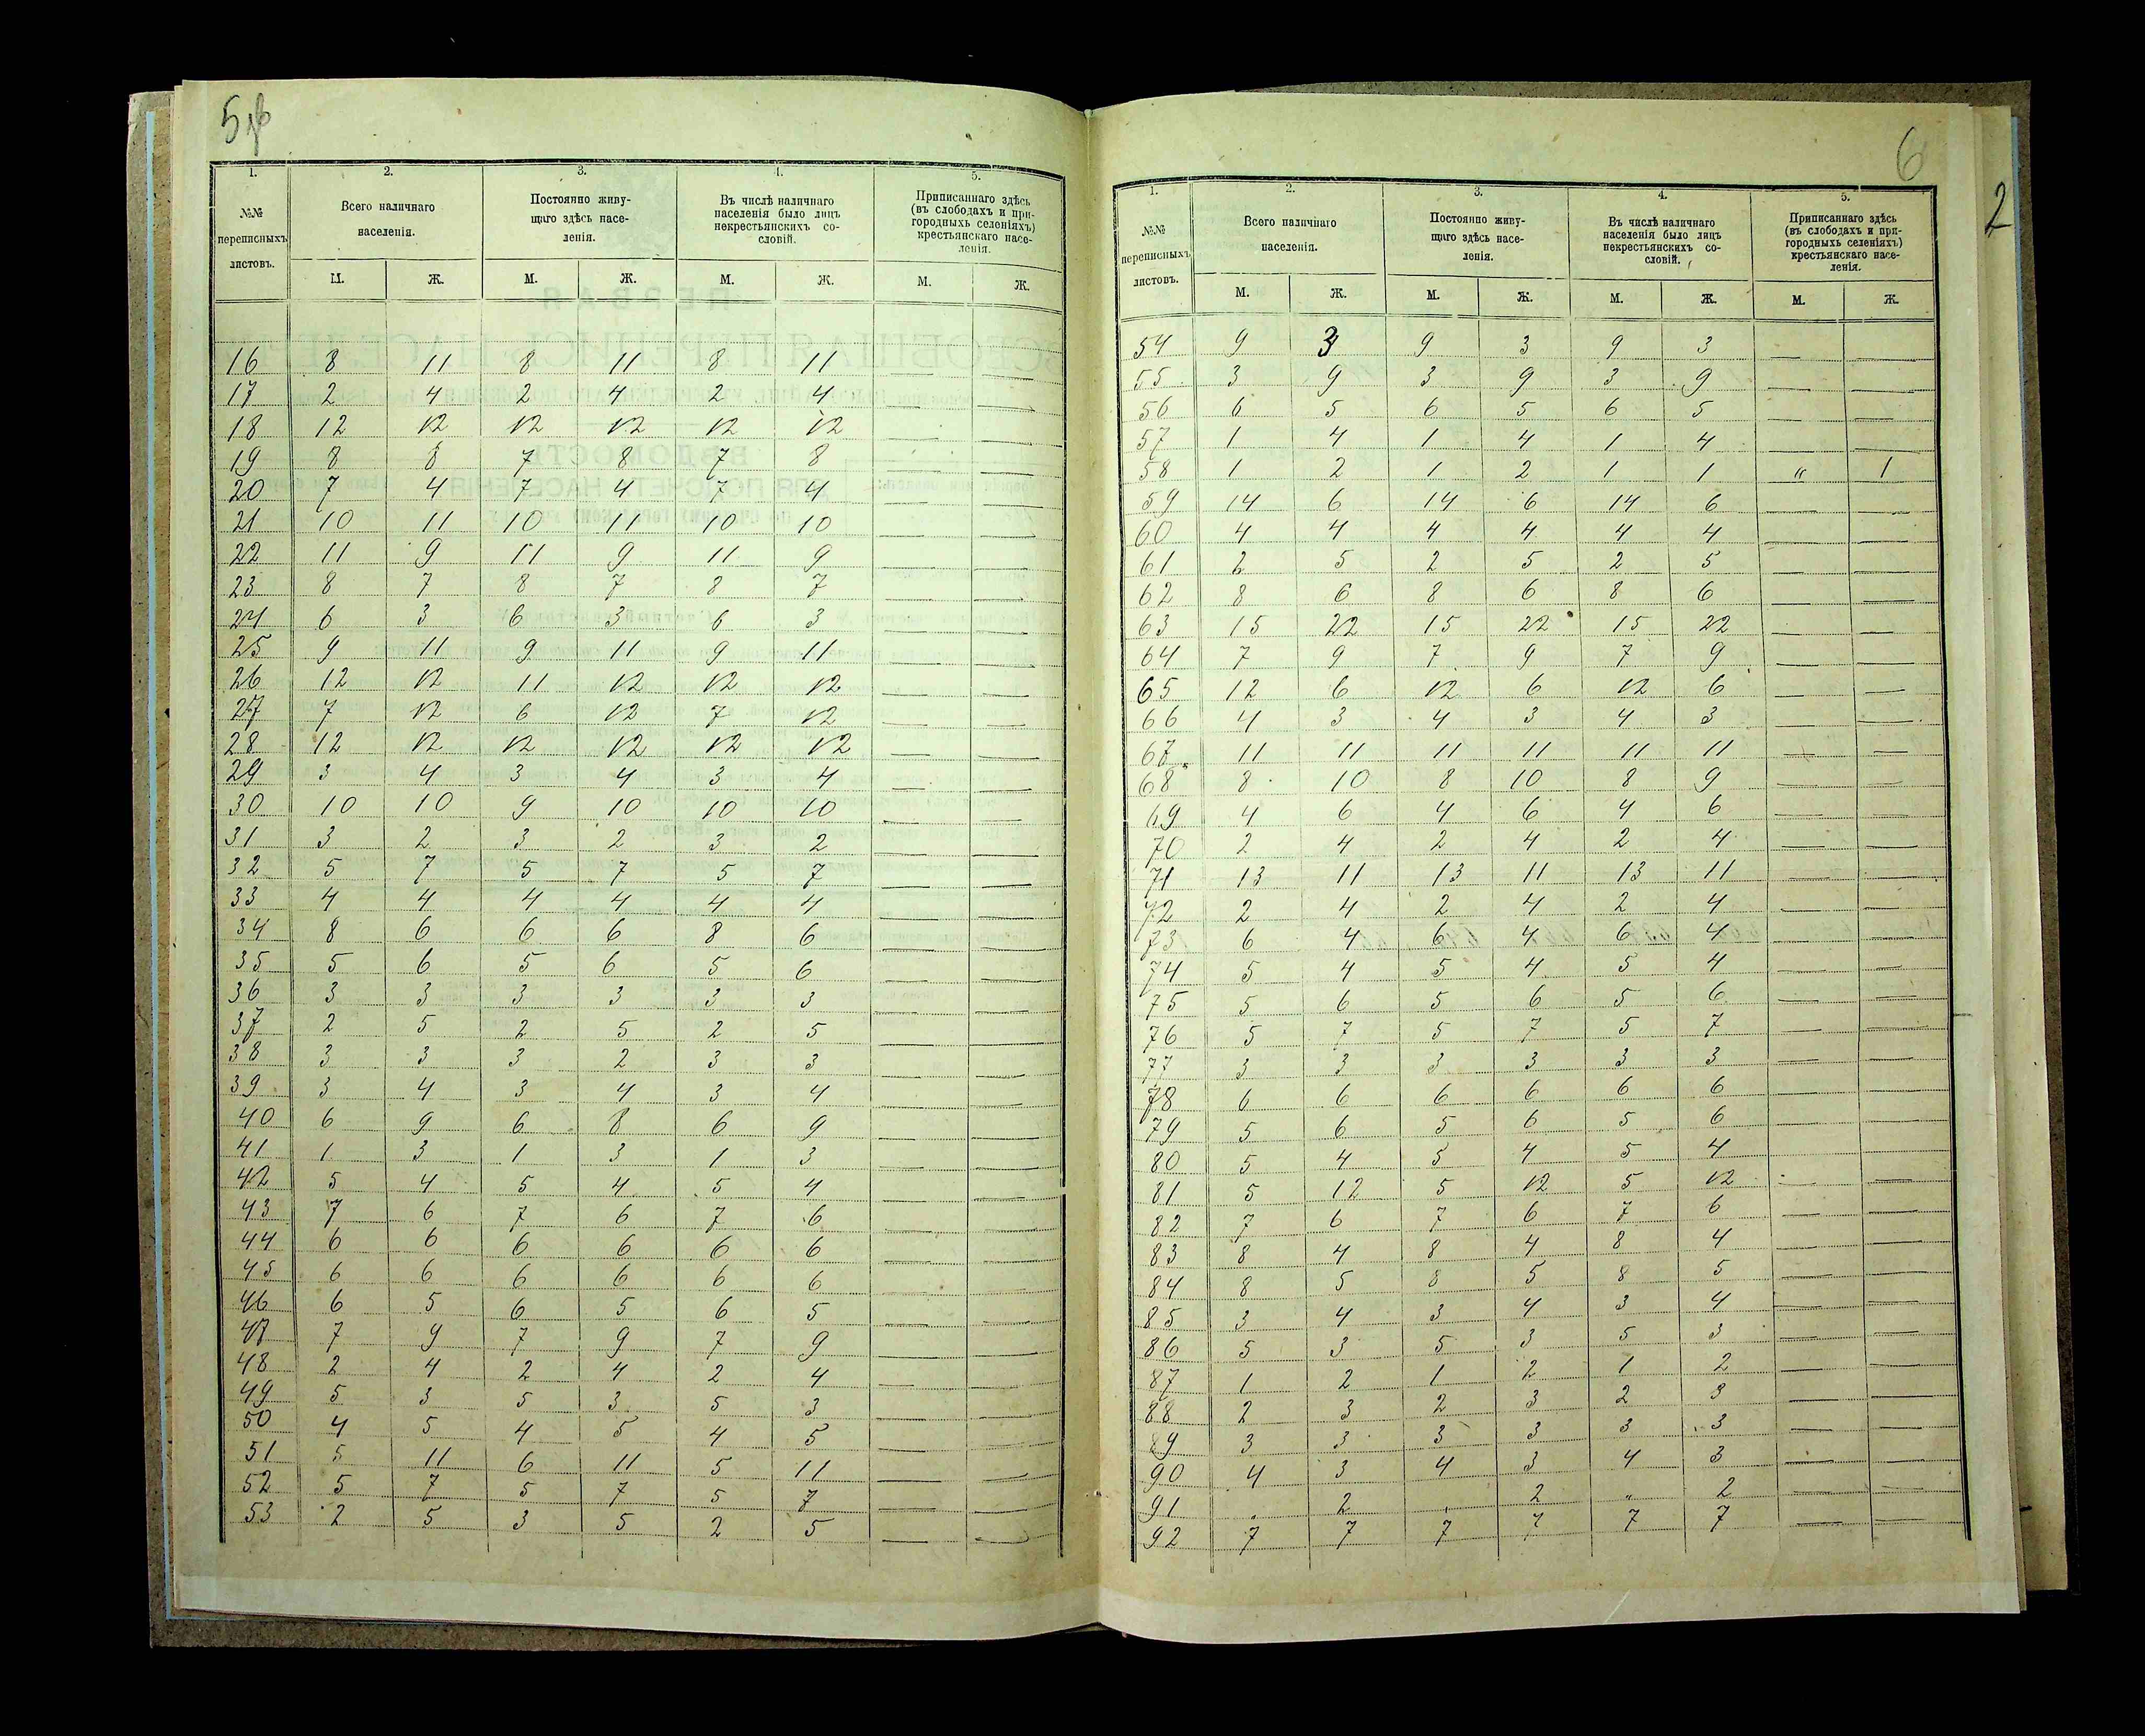 5 об
1. 2. 3. 4. 5.
№№ переписныхъ листовъ.
Всего наличнаго населенія.
Постоянно живу-
щаго здѣсь насе-
ленія.
Въ числѣ наличнаго
населенія было лицъ
некрестьянскихъ со-
словій.
Приписаннаго здѣсь
(въ слободахъ и при-
городныхъ селеніяхъ)
крестьянскаго насе-
ленія.
М. Ж. М. Ж. М. Ж. М. Ж.
16 8 11 8 11 8 11 — —
17 2 4 2 4 2 4 — —
18 12 12 12 12 12 12 — —
19 8 8 7 8 7 8 — —
20 7 4 7 4 7 4 — —
21 10 11 10 11 10 10 — —
22 11 9 11 9 11 9 — —
23 8 7 8 7 8 7 — —
24 6 3 6 3 6 3 — —
25 9 11 9 11 9 11 — —
26 12 12 11 12 12 12 — —
27 7 12 6 12 7 12 — —
28 12 12 12 12 12 12 — —
29 3 4 3 4 3 4 — —
30 10 10 9 10 10 10 — —
31 3 2 3 2 3 2 — —
32 5 7 5 7 5 7 — —
33 4 4 4 4 4 4 — —
34 8 6 6 6 8 6 — —
35 5 6 5 6 5 6 — —
36 3 3 3 3 3 3 — —
37 2 5 2 5 2 5 — —
38 3 3 3 2 3 3 — —
39 3 4 3 4 3 4 — —
40 6 9 6 8 6 9 — —
41 1 3 1 3 1 3 — —
42 5 4 5 4 5 4 — —
43 7 6 7 6 7 6 — —
44 6 6 6 6 6 6 — —
45 6 6 6 6 6 6 — —
46 6 5 6 5 6 5 — —
47 7 9 7 9 7 9 — —
48 2 4 2 4 2 4 — —
49 5 3 5 3 5 3 — —
50 4 5 4 5 4 5 — —
51 5 11 6 11 5 11 — —
52 5 7 5 7 5 7 — —
53 2 5 3 5 2 5 — —
6
2
1. 2. 3. 4. 5.
№№ переписныхъ листовъ.
Всего наличнаго населенія.
Постоянно живу-
щаго здѣсь насе-
ленія.
Въ числѣ наличнаго
населенія было лицъ
некрестьянскихъ со-
словій.
Приписаннаго здѣсь
(въ слободахъ и при-
городныхъ селеніяхъ)
крестьянскаго насе-
ленія.
М. Ж. М. Ж. М. Ж. М. Ж.
54 9 3 9 3 9 3 — —
55 3 9 3 9 3 9 — —
56 6 5 6 5 6 5 — —
57 1 4 1 4 1 4 — —
58 1 2 1 2 1 1 " 1
59 14 6 14 6 14 6 — —
60 4 4 4 4 4 4 — —
61 2 5 2 5 2 5 — —
62 8 6 8 6 8 6 — —
63 15 22 15 22 15 22 — —
64 7 9 7 9 7 9 — —
65 12 6 12 6 12 6 — —
66 4 3 4 3 4 3 — —
67 11 11 11 11 11 11 — —
68 8 10 8 10 8 9 — —
69 4 6 4 6 4 6 — —
70 2 4 2 4 2 4 — —
71 13 11 13 11 13 11 — —
72 2 4 2 4 2 4 — —
73 6 4 6 4 6 4 — —
74 5 4 5 4 5 4 — —
75 5 6 5 6 5 6 — —
76 5 7 5 7 5 7 — —
77 3 3 3 3 3 3 — —
78 6 6 6 6 6 6 — —
79 5 6 5 6 5 6 — —
80 5 4 5 4 5 4 — —
81 5 12 5 12 5 12 — —
82 7 6 7 6 7 6 — —
83 8 4 8 4 8 4 — —
84 8 5 8 5 8 5 — —
85 3 4 3 4 3 4 — —
86 5 3 5 3 5 3 — —
87 1 2 1 2 1 2 — —
88 2 3 2 3 2 3 — —
89 3 3 3 3 3 3 — —
90 4 3 4 3 4 3 — —
91 " 2 " 2 " 2 — —
92 7 7 7 7 7 7 — —